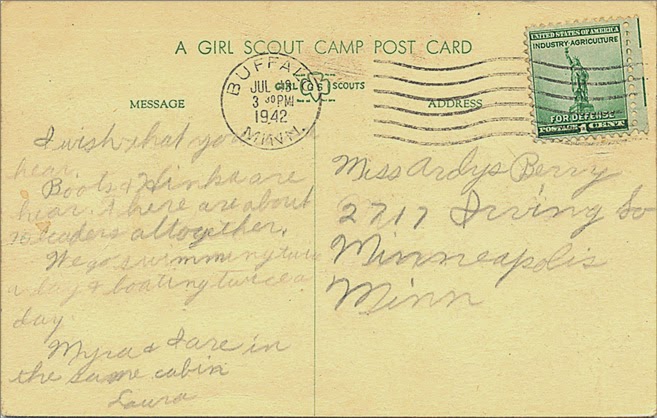 A GIRL SCOUT CAMP POST CARD
BUFFALO
JUL 13
3 30 PM
1942
MINN.
GIRL GS SCOUTS
UNITED STATES OF AMERICA
INDUSTRY-AGRICULTURE
FOR DEFENSE
POSTAGE 1 CENT
MESSAGE
ADDRESS
I wish that you
hear.
Boots & Hinka are
hear. There are about
leaders altogether.
We go swimming twice
a day & boating twice a
day.
Myra & I are in
the same cabin
Laura
Miss Ardys Berry
2717 Irving So
Minneapolis
Minn